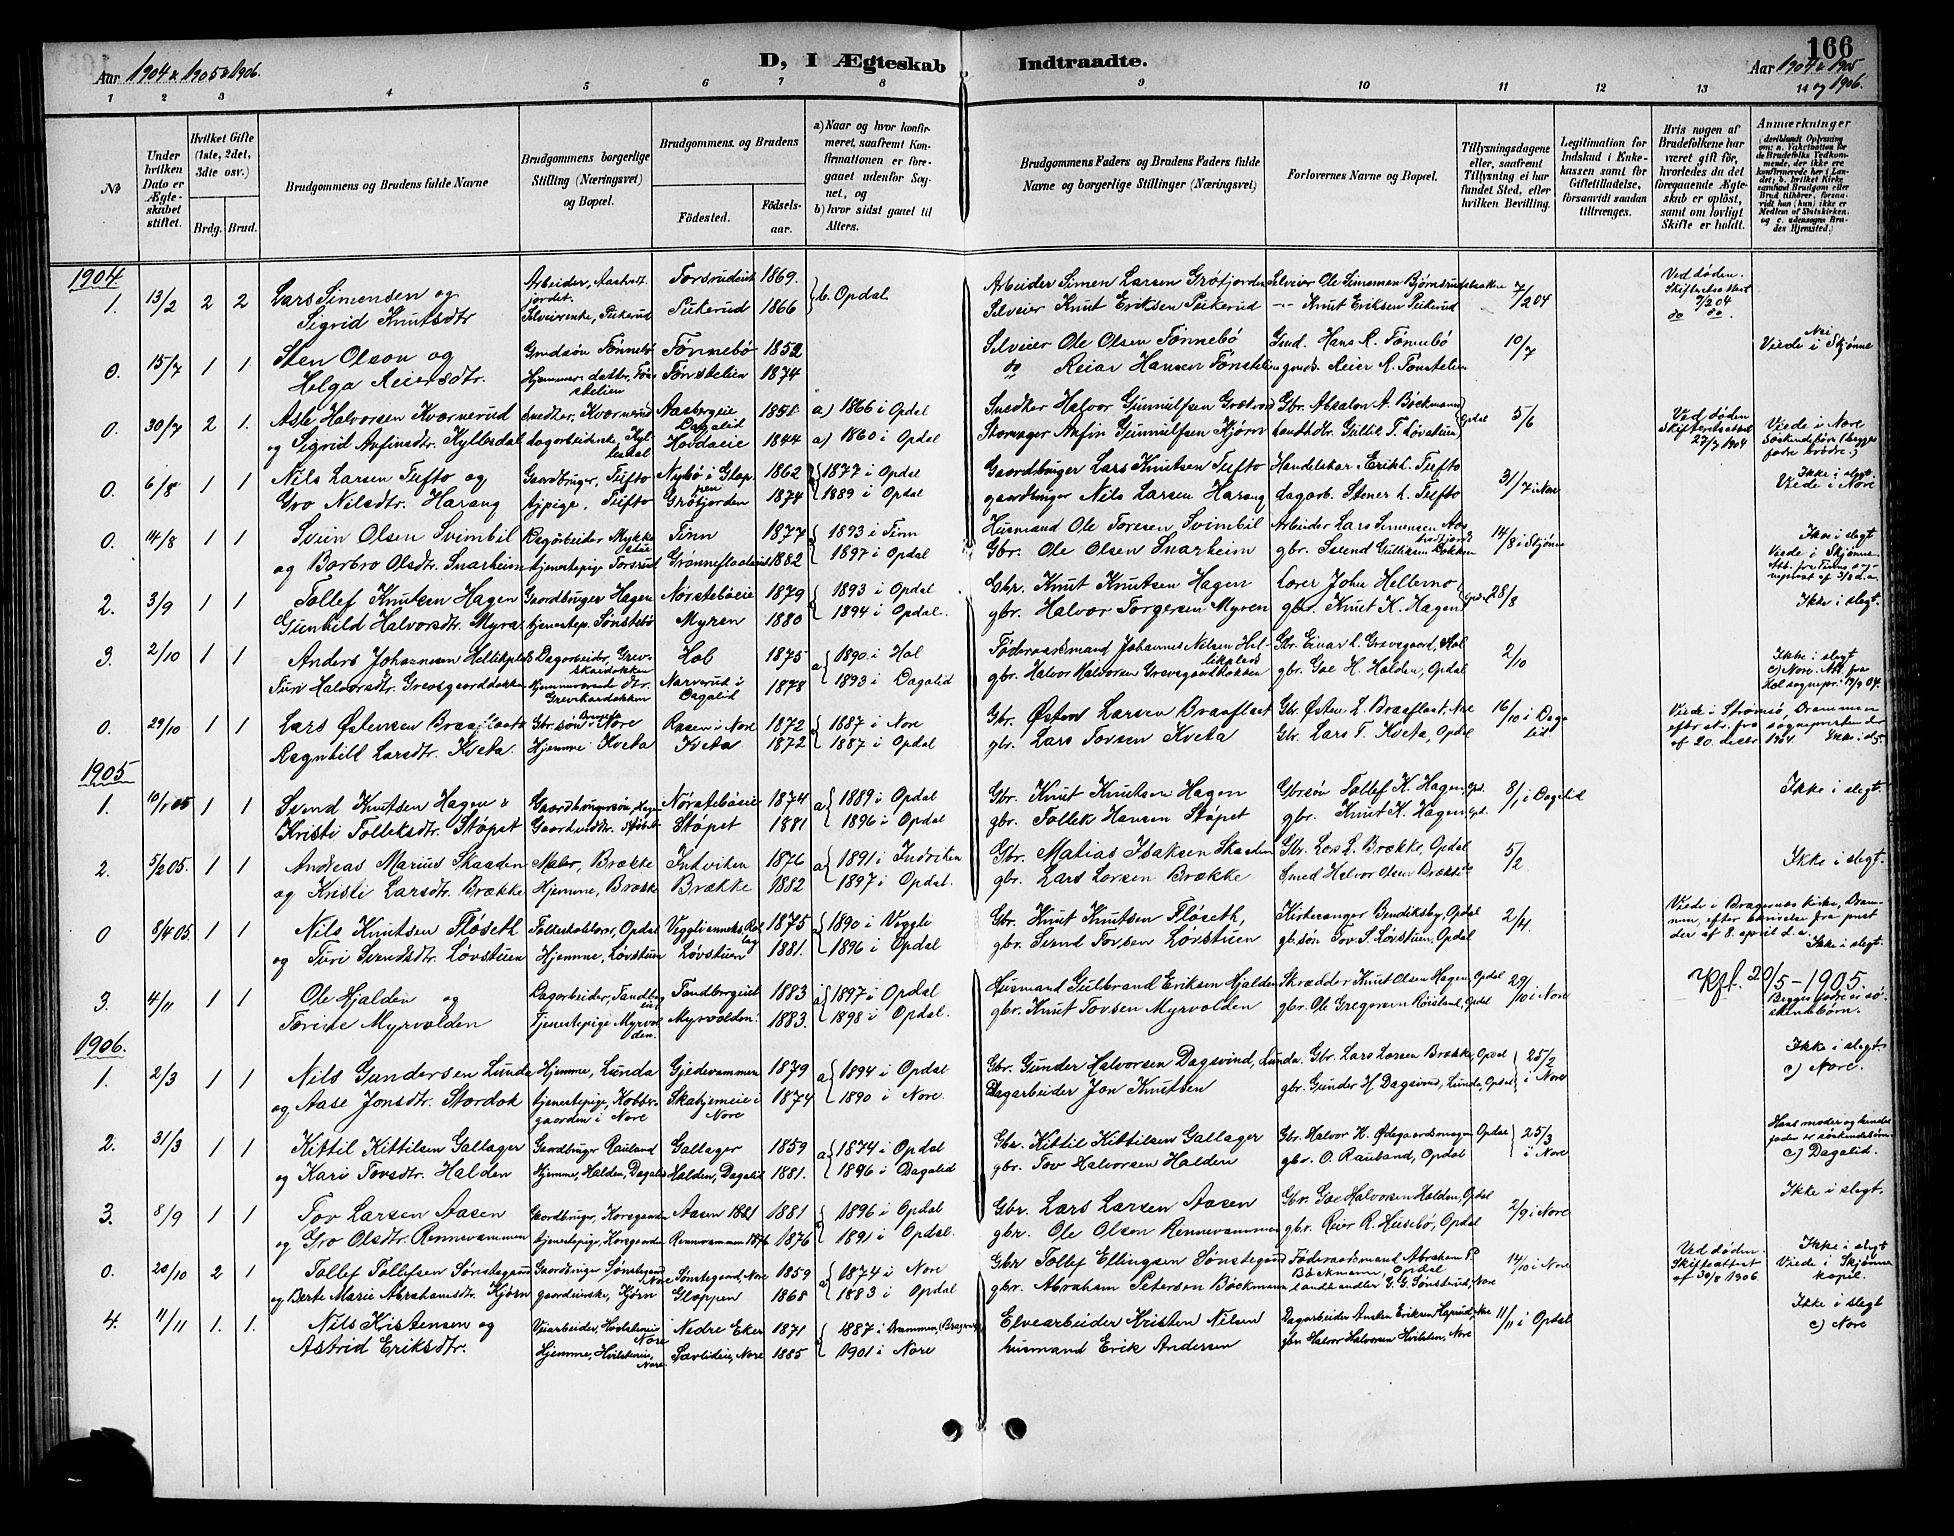 166
Aar 1904 & 1905 & 1906.
D, I Ægteskab Indtraadte.
Aar 1904 & 1905 og 1906.
1 2 3 4 5 6 7 8 9 10 11 12 13 14
No
Under hvilken Dato er Ægteskabet stiftet.
Hvilket Gifte (1ste, 2det, 3die osv.)
Brdg. Brud.
Brudgommens og Brudens fulde Navne
Brudgommens borgerlige Stilling (Næringsvei) og Bopæl.
Brudgommens og Brudens
Födested.
Födselsaar.
a) Naar og hvor konfirmeret, saafremt Konfirmationen er foregaaet udenfor Sognet, og
b) hvor sidst gaaet til Alters.
Brudgommens Faders og Brudens Faders fulde Navne og borgerlige Stillinger (Næringsvei)
Forlovernes Navne og Bopæl.
Tillysningsdagene eller, saafremt Tillysning ei har fundet Sted, efter hvilken Bevilling.
Legitimation for Indskud i Enkekassen samt for Giftetilladelse, forsaavidt saadan tiltrænges.
Hvis nogen af Brudefolkene har været gift för, hvorledes da det foregaaende Ægteskab er oplöst, samt om lovligt Skifte er holdt.
Anmærkninger
1904
1. 13/2 2 2 Lars Simensen og Arbeider, Torsrudeiet 1869. b. Opdal Arbeider Simen Larsen Grötjorden Selveier Ole Simensen 7/2 04 Ved döden. Skifteattest 7/2 04
Sigrid Knutsdtr Selveierenke, Pukerud Pukerud 1866 Selveier Knut Eriksen Pukerud Knut Eriksen Pukerud do do.
0. 15/7 1 1 Sten Olson og Grdsön Tönnebö Tönnebö 1852 Selveier Ole Olsen Tönnebö Grd. Hans R. Tönnebö 10/7 Nei Viede i Skjönne
Helga Reiersdtr. Hjemmev. datter, Tönstelien Tönstelien 1874 do Reiar Hansen Tönstelien grdb. Reier R. Tönstelien
0. 30/7 2 1. Asle Halvorsen Kværnerud Snedker, Kværnerud Aasbergeie Dagalid 1851 a) 1866 i Opdal Snedker Halvor Gunnulfsen Gbr. Absalon A. Böckmann Opdal 5/6 Ved döden Skifteattest 27/7 1904 Viede i Nore
og Sigrid Anfinsdtr. Kyllesdal 1844 a) 1860 i Opdal Anfin Gunnulfsen Kjörn Gullik T. Lövstuen Söskendebörn (begges fædre brödre.)
0. 6/8 1 1 Nils Larsen Tufto og Gaardbruger, Tufto Nybö i 1862 1877 i Opdal Gaardbruger Lars Knutsen Tufto Handelskar. Erik L. Tufto 31/7 i Nore Ikke i slegt
Gro Nilsdtr. Harang Tufto Grötjorden 1874 1889 i Opdal gaardbruger Nils Larsen Harang dagarb. Stener L. Tufto Viede i Nore
0. 14/8 1 1 Svein Olsen Svimbil Dagarbeider Tinn 1877 1893 i Tinn Husmand Ole Toresen Svimbil Arbeider Lars Simensen 14/8 i Skjönne Ikke i slegt
og Barbro Olsdtr. Snarheim tjenestepige Torsrud Grönneflaateiet 1882 1897 i Opdal Gbr. Ole Olsen Snarheim gbr. Svend Gulliksen Bakken Viede i Skjönne.
2. 3/9 1 1 Tollef Knutsen Hagen Gaardbruger Hagen Nörsteböeie 1879 1893 i Opdal Gbr. Knut Knutsen Hagen Lærer John Hellemo, Opdal 28/8 Ikke i slegt.
Gunhild Halvorsdtr. Myra tjenestep. Sönstebö Myren 1880 1894 i Opdal. gbr. Halvor Torgersen Myren gbr. Knut K. Hagen
3. 2/10 1 1 Anders Johannesen Hellikplads Dagarbeider, Grevskardokken Hol 1875 a 1890 i Hol Föderaadsmand Johannes Nilsen Hellikplads Gbr. Einar L. Grevegaard, Hol 2/10 Ikke i slegt
Turi Halvorsdtr. Grevsgaarddokken Hjemmev. dtr. Grevskardokken Narverud i Dagalid 1878 1893 i Dagalid gbr. Halvor Halvorsen Grevsgaardokken gbr. Goe H. Halden, Opdal c) Nore. Att. fra Hol sognepr. 19/9 04.
0. 29/10 1 1 Lars Östensen Braaflaat Gbr.sön, Nore Raaen i Nore 1872 a 1887 i Nore Gbr. Östen Larsen Braaflaat Gbr. Östen L. Braaflaat, Nore 16/10 i Dagalid Viede i Strömsö, Drammen
Ragnhild Larsdtr. Kveta. Hjemme. Kveta Kveta. 1872 1887 i Opdal gbr. Lars Torsen Kveta Gbr. Lars T. Kveta, Opdal efter skr. fra sognepresten der af 20. decbr. 1904. Ikke i slegt.
1905
1. 10/1 05 1 1 Svend Knutsen Hagen & Gaardbrugersön, Hagen Nörsteböeie 1874 a 1889 i Opdal Gbr. Knut Knutsen Hagen Gbrsön Tollef K. Hagen, Opd. 8/1 i Dagalid Ikke i slegt.
Kristi Tolleksdtr. Stöpet Stöpet 1881 1896 i Opdal gbr. Tollek Hansen Stöpet gbr. Knut K. Hagen, Opd.
2. 5/2 05. 1 1 Andreas Marius Skaaden Maler, Brække Indviken 1876 a 1891 i Indviken Gbr. Matias Isaksen Skaaden Gbr. Lars L. Brække, Opdal 5/2 Ikke i slegt.
og Kristi Larsdtr. Brække Hjemme, Brække Brække 1882 1897 i Opdal. gbr. Lars Larsen Brække Smed Halvor Olsen Brække
0 8/4 05. 1 1 Nils Knutsen Flöseth Folkeskolelærer, Opdal Veggli anneks, Rollag 1875 a 1890 i Veggli Gbr. Knut Knutsen Flöseth, Kirkesanger Bendiksby, Opdal 2/4 Viede i Bragernes kirke, Drammen, efter skrivelse fra prest
og Turi Svendsdtr. Lövstuen Hjemme, Lövstuen Lövstuen 1881. 1896 i Opdal gbr. Svend Torsen Lövstuen gbr.sön Tov S. Lövstuen, Opdal der af 8. april d.a. Ikke i slegt.
3. 4/11 1 1 Ole Hjalden og Dagarbeider, Tandberg Tandbergeiet 1883 a 1897 i Opdal Husmand Guldbrand Eriksen Hjalden Skrædder Knut Olsen Hagen, Opdal 29/10 i Nore 20/5 - 1905.
Torine Myrvolden Tjenestepige Myrvolden. Myrvolden. 1883. 1898 i Opdal. gbr. Knut Torsen Myrvolden gbr. Ole Gregersen Röisland, Opdal Begges fædre er söskenbörn.
1906.
1. 2/3 1 1 Nils Gundersen Lunda Hjemme, Lunda Gjedevammen 1879 a 1894 i Opdal Gbr. Gunder Halvorsen Dagsvind, Lunda. Gbr. Lars Larsen Brække, Opdal 25/2 i Nore Ikke i slegt.
og Aase Jonsdtr. Stordok tjenestepige, Kobbergaarden i Nore Skatjemeie i Nore 1874 1890 i Nore. Dagarbeider Jon Knutsen gbr. Gunder H. Dagsvind, Lunde, Opdal c) Nore.
2. 31/3 1 1 Kittil Kittilsen Gallager Gaardbruger Rauland Gallager 1859 a 1874 i Opdal Gbr. Kittil Kittilsen Gallager Gbr. Halvor K. Ödegaardsmogen, Opdal 25/3 i Nore Hans moder og hendes fader er söskendebörn.
og Kari Tovsdtr. Halden Hjemme, Halden, Dagalid Halden, Dagalid 1881. 1896 i Dagalid gbr. Tov Halvorsen Halden gbr. O. Rauland, Opdal c) Dagalid.
3. 8/9 1 1 Tov Larsen Aasen Gaardbruger, Horsgaarden Aasen 1881 1881 1896 i Opdal Gbr. Lars Larsen Aasen Gbr. Goe Halvorsen Halden, Opdal 2/9 i Nore Ikke i slegt.
og Gro Olsdtr. Rennevammen tjenestepige, Horsgaarden Rennevammen 1876 1876 1891 i Opdal. gbr. Ole Olsen Rennevammen gbr. Reier R. Husebö, Opdal
0. 20/10 2 1 Tollef Tollefsen Sönstegaard Gaardbruger Sönstegaard, Nore Sönstegaard, Nore 1859 a 1874 i Nore Gbr Tollef Ellingsen Sönstegaard Föderaadsmand Abraham P. Böckmann, Opdal 14/10 i Nore Ved döden. Skifteattest af 30/8 1906 Ikke i slegt
og Berte Marie Abrahamsdtr. Kjörn Kjörn Gloppen 1868 1883 i Opdal gbr. Abraham Petersen Böckmann Landhandler G. G. Sönstrud, Nore Viede i Skjönne kapel.
4. 11/11 1. 1. Nils Kistensen og Veiarbeider, Nore Nedre Eker 1871 1887 i Drammen, (Bragernes) Elvearbeider Kristen Nilsen Dagarbeider Anders Eriksen, Nore 11/11 i Opdal Ikke i slegt
Astrid Eriksdtr. Hjemme, Nore Nore 1885 1901 i Nore husmand Erik Andersen gbr Halvor Halvorsen, Nore c) Nore